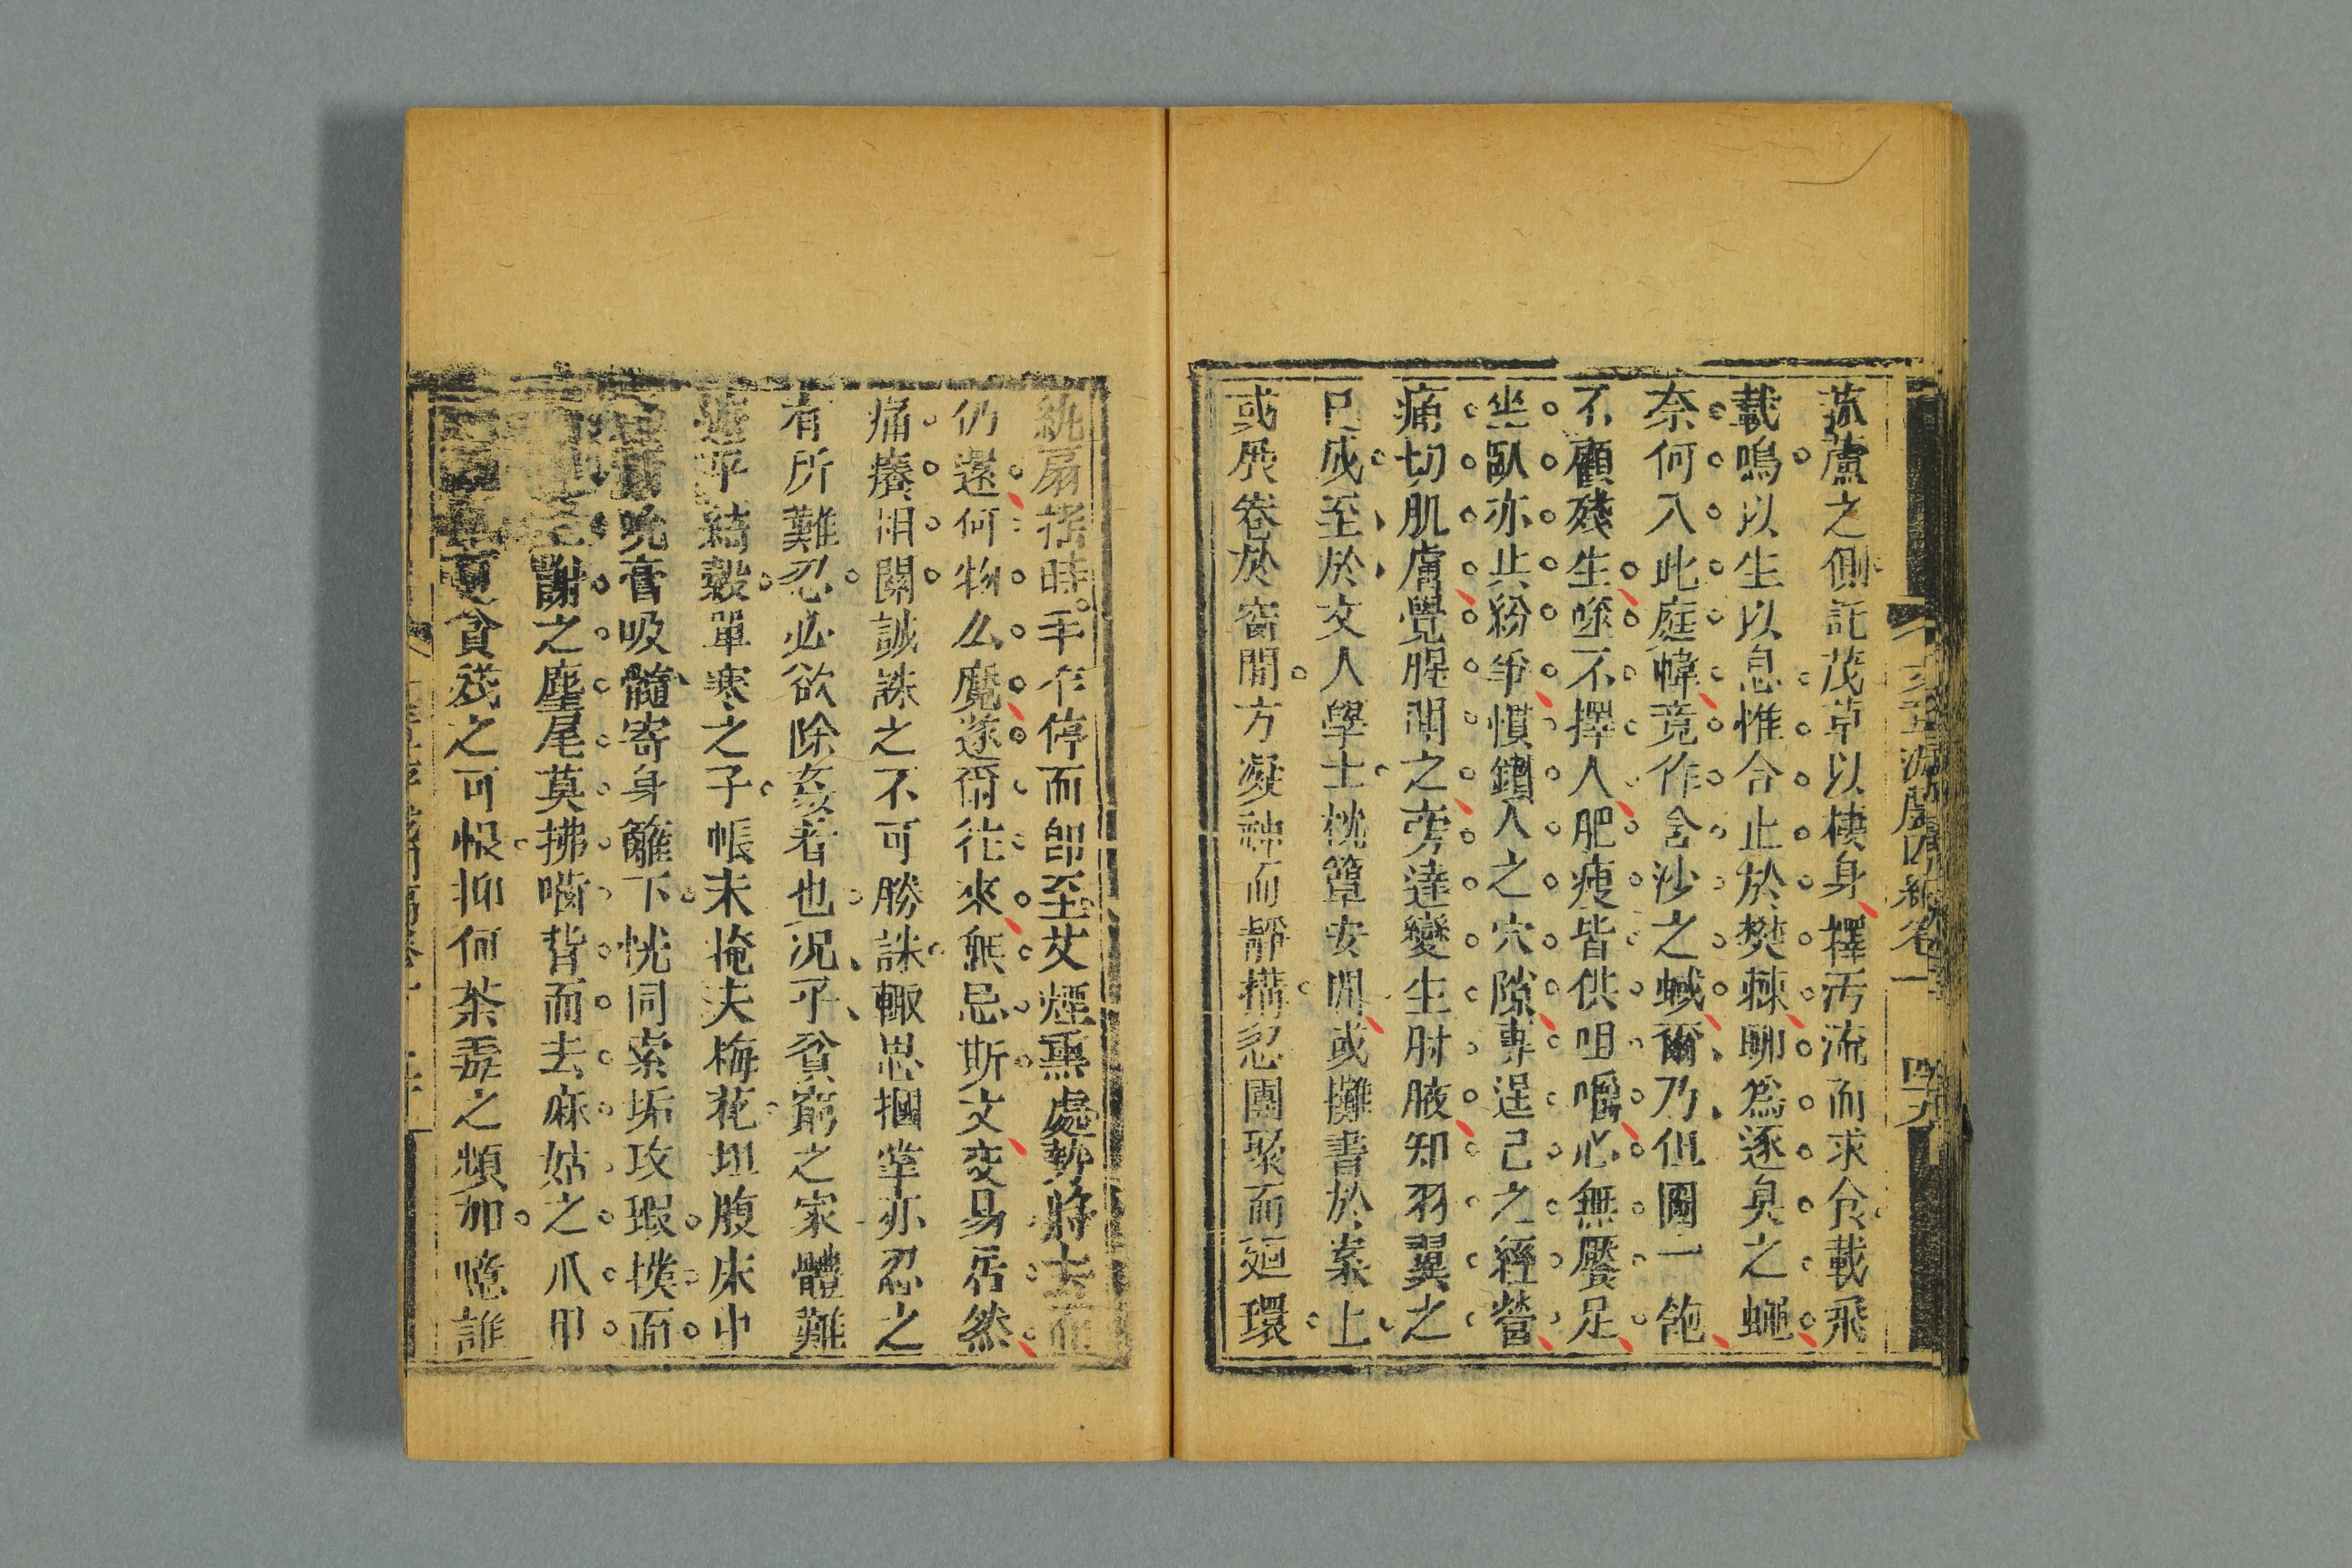 菰蘆之側託茂草以棲身擇汚流而求食載飛
載鳴以生以息惟合止於樊棘聊為逐臭之蠅
奈何入此庭幃竟作含沙之蜮爾乃但圖一飽
不顧殘生噬不擇人肥瘦皆供咀嚼心無饜足
坐臥亦共紛爭慣鑽人之穴隙專逞己之經營
痛切肌膚覺腥聞之旁達變生肘腋知羽翼之
已成至於文人學士枕簟安閒或攤書於案上
或展卷於窗間方凝神而靜構忽團聚而廻環
紈扇搖時手乍停而即至艾煙熏處勢將去而
仍還何物么魔遂爾往來無忌斯文變易居然
痛癢相關誠誅之不可勝誅輒思摑掌亦忍之
有所難忍必欲除亥者也况乎貧窮之家體難
平綺縠單寒之子帳未掩夫梅花坦腹床中
吮膏吸髓寄身籬下恍同索垢攻瑕撲而
謝之麈尾莫拂嚙背而去麻姑之爪甲
更貪殘之可恨抑何荼毒之頻加噫誰
四九